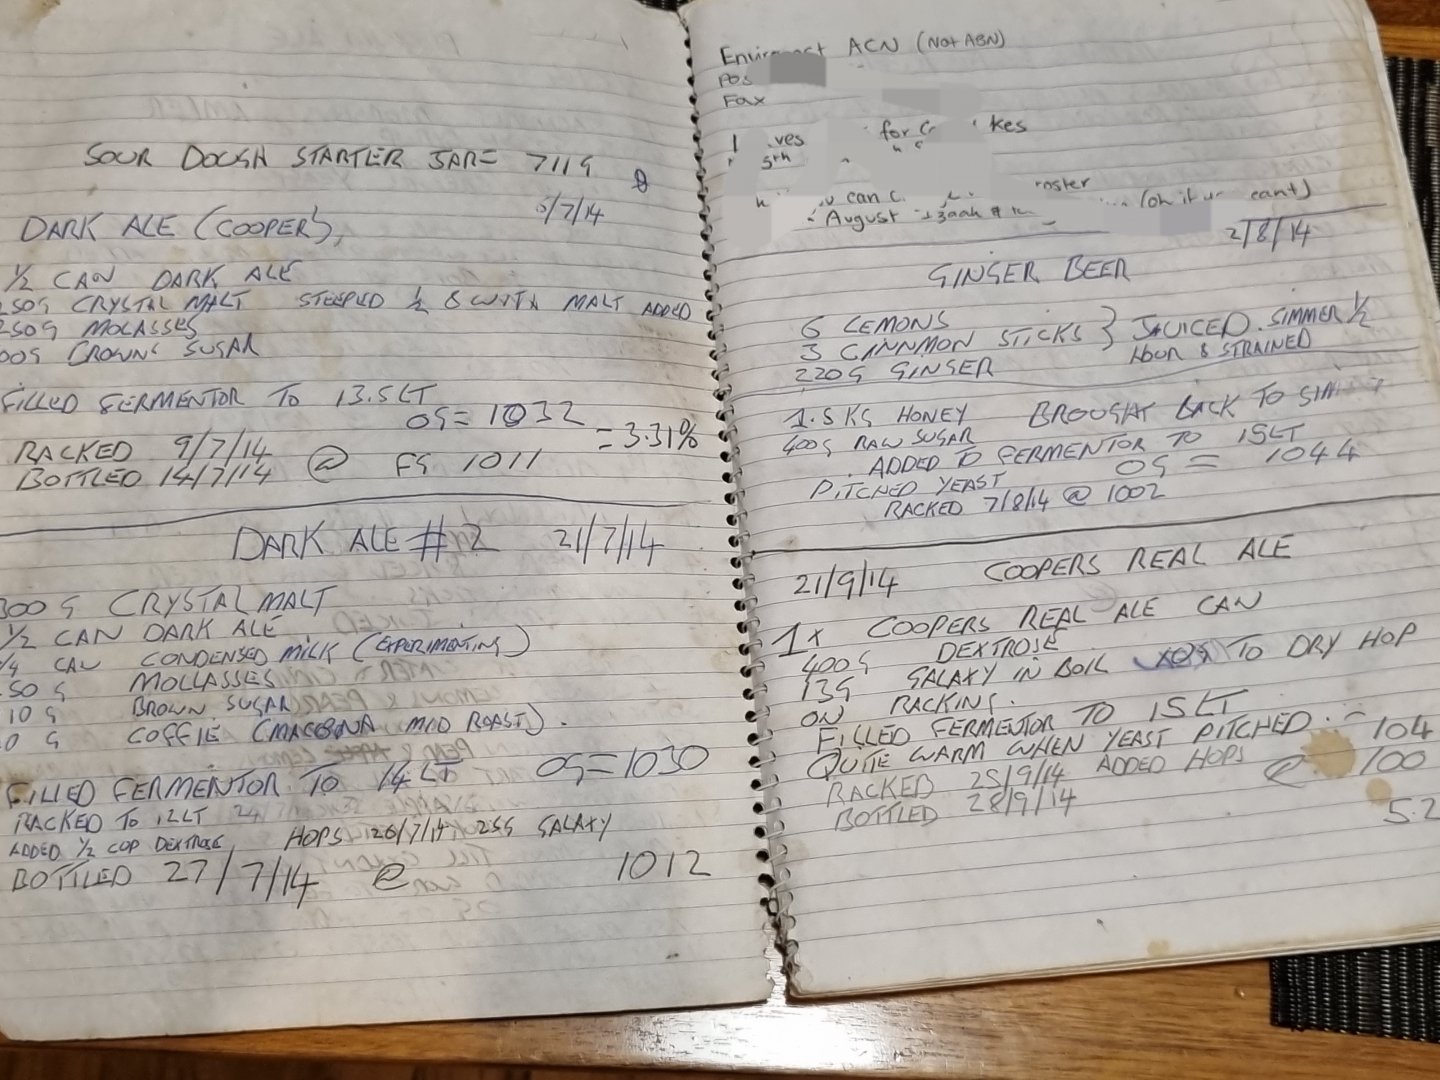 SOUR DOUGH STARTER JAR = 711G
6/7/14
DARK ALE (COOPER),
1/2 CAN DARK ALE
250G CRYSTAL MALT STEEPED 1/2 & WITH MALT ADDED
250G MOLASSES
00G BROWN SUGAR
FILLED FERMENTOR TO 13.5LT
OG = 1032
= 3.31%
RACKED 9/7/14
BOTTLED 14/7/14 @ FG 1011
DARK ALE #2 21/7/14
300 G CRYSTAL MALT
1/2 CAN DARK ALE
1/4 CAN CONDENSED MILK (EXPERIMENTING)
50 G MOLLASSES
10 G BROWN SUGAR
0 G COFFIE (MACCONA MID ROAST).
FILLED FERMENTOR TO 14LT OG = 1030
RACKED TO 12LT 24
ADDED 1/2 CUP DEXTROSE HOPS 26/7/14 25G GALAXY
BOTTLED 27/7/14 @ 1012
ACN (Not ABN)
Fax
for
kes
can
roster
August
(oh if u cant)
2/8/14
GINGER BEER
6 LEMONS
3 CINNMON STICKS } JUICED. SIMMER 1/2
220G GINGER HOUR & STRAINED
1.5 KG HONEY BROUGHT BACK TO
400G RAW SUGAR
. ADDED TO FERMENTOR TO 15LT
OG = 1044
PITCHED YEAST
RACKED 7/8/14 @ 1002
21/9/14 COOPERS REAL ALE
1x COOPERS REAL ALE CAN
400G DEXTROSE
13G GALAXY IN BOIL TO DRY HOP
ON RACKING.
FILLED FERMENTOR TO 15LT
QUITE WARM WHEN YEAST PITCHED. - 104
RACKED 25/9/14 ADDED HOPS @ 100
BOTTLED 28/9/14
5.2